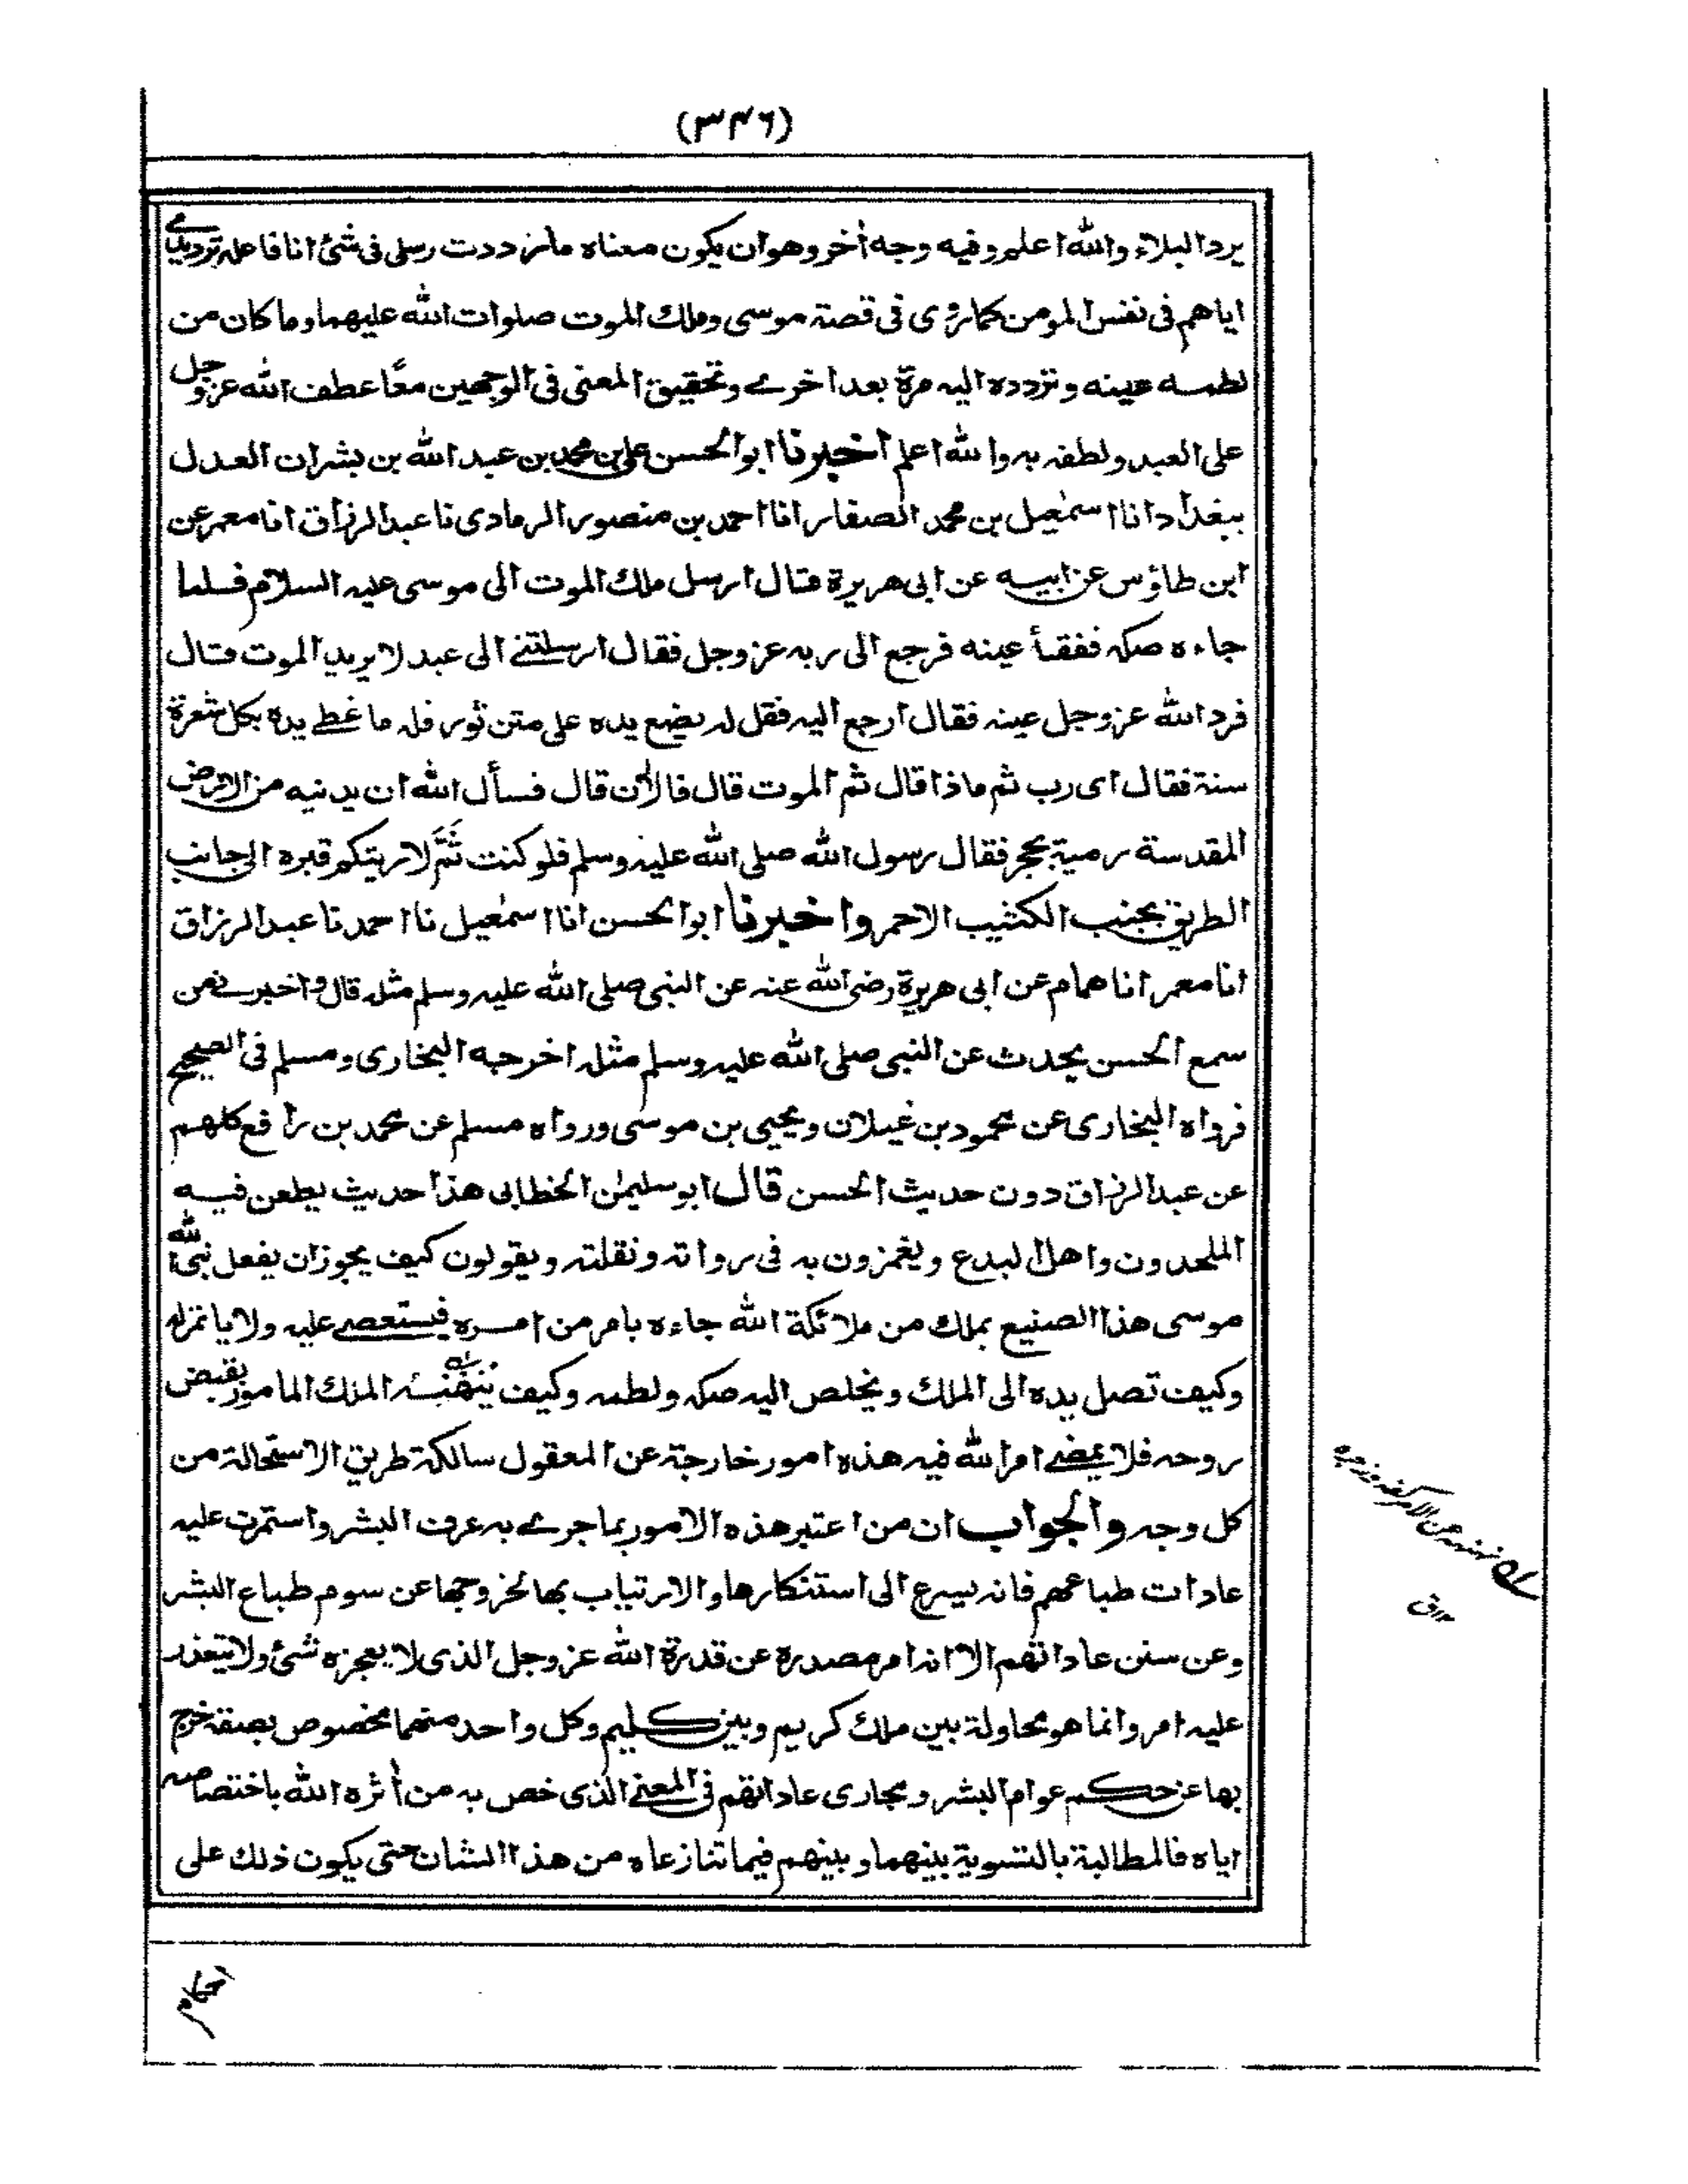 (٣٤٦)
يرد البلاء والله اعلم وفيه وجه أخر وهو ان يكون معناه ما رددت رسلى فى شئ انا فاعله ترديدى
اياهم فى نفس المومن كما رؤى فى قصة موسى وملك الموت صلوات الله عليهما وما كان من
لطمه عينه وتردده اليه مرة بعد اخرے وتحقيق المعنى فى الوجهين معًا عطف الله عز وجل
على العبد ولطفه به والله اعلم اخبرنا ابو الحسن على بن محمد بن عبد الله بن بشران العدل
ببغداد انا اسمٰعيل بن محمد الصفار انا احمد بن منصور الرمادى نا عبد الرزاق انا معمر عن
ابن طاؤس عن ابيه عن ابى هريرة قال ارسل ملك الموت الى موسى عليه السلام فلما
جاءه صكه ففقأ عينه فرجع الى ربه عز وجل فقال ارسلتنے الى عبد لا يريد الموت قال
فرد الله عز وجل عينه فقال ارجع اليه فقل له يضع يده على متن ثور فله ما غطے يده بكل شعرة
سنة فقال اى رب ثم ماذا قال ثم الموت قال فالأن قال فسأل الله ان يدنيه من الارض
المقدسة رمية بحجر فقال رسول الله صلى الله عليه وسلم فلو كنت ثَمَّ لاريتكم قبره الى جانب
الطريق بجنب الكثيب الاحمر واخبرنا ابو الحسن انا اسمٰعيل نا احمد نا عبد الرزاق
انا معمر انا همام عن ابى هريرة رضى الله عنه عن النبى صلى الله عليه وسلم مثله قال واخبرنے من
سمع الحسن يحدث عن النبى صلى الله عليه وسلم مثله اخرجه البخارى ومسلم فى الصحيح
فرواه البخارى عن محمود بن غيلان ويحيى بن موسى ورواه مسلم عن محمد بن رافع كلهم
عن عبد الرزاق دون حديث الحسن قال ابو سليمٰن الخطابى هذا حديث يطعن فيه
الملحدون واهل البدع ويغمزون به فى رواته ونقلته ويقولون كيف يجوز ان يفعل نبى الله
موسى هذا الصنيع بملك من ملائكة الله جاءه بامر من امره فيستعصے عليه ولا ياتمر له
وكيف تصل يده الى الملك ويخلص اليه صكه ولطمه وكيف ينهنهه الملك المامور بقبض
روحه فلا يمضے امر الله فيه هذه امور خارجة عن المعقول سالكة طريق الاستحالة من
كل وجه والجواب ان من اعتبر هذه الامور بما جرے به عرف البشر واستمرت عليه
عادات طباعهم فانه يسرع الى استنكارها والارتياب بها لخروجها عن سوم طباع البشر
وعن سنن عاداتهم الا انه امر مصدره عن قدرة الله عز وجل الذى لا يعجزه شئ ولا يتعذر
عليه امر وانما هو محاولة بين ملك كريم وبين كليم وكل واحد منهما مخصوص بصفة خرج
بها عن حكم عوام البشر ومجارى عاداتهم فى المعنے الذى خص به من أثره الله باختصاصه
اياه فالمطالبة بالتسوية بينهما وبينهم فيما تنازعاه من هذا الشان حتى يكون ذلك على
احكام